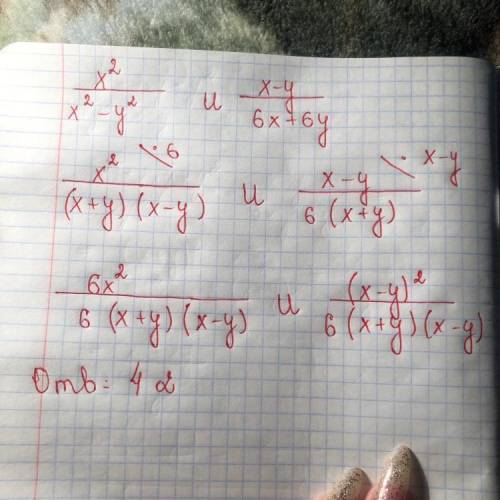 x²/(x² - y²) и (x-y)/(6x+6y)
x² \·6/((x+y)(x-y)) и (x-y) \· x-y/(6(x+y))
6x²/(6(x+y)(x-y)) и (x-y)²/(6(x+y)(x-y))
Отв: 4 2